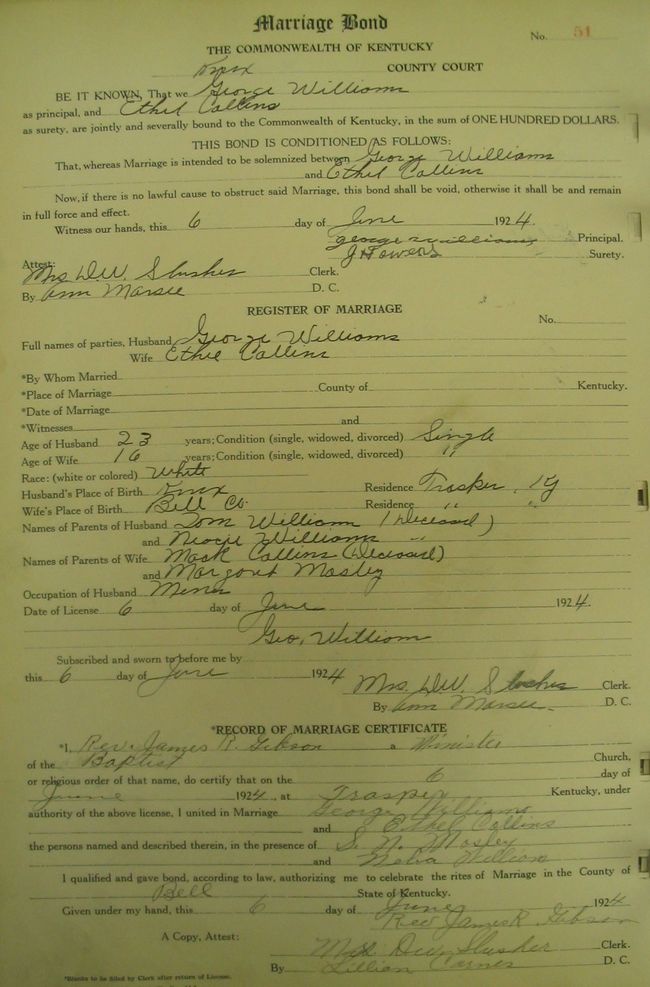 Marriage Bond
No. 51
THE COMMONWEALTH OF KENTUCKY
Knox COUNTY COURT
BE IT KNOWN, That we George Williams
as principal, and Ethel Collins
as surety, are jointly and severally bound to the Commonwealth of Kentucky, in the sum of ONE HUNDRED DOLLARS.
THIS BOND IS CONDITIONED AS FOLLOWS:
That, whereas Marriage is intended to be solemnized between George Williams
and Ethel Collins
Now, if there is no lawful cause to obstruct said Marriage, this bond shall be void, otherwise it shall be and remain
in full force and effect.
Witness our hands, this 6 day of June 1924.
george williams Principal.
J H Owens Surety.
Attest:
Mrs. D.W. Slusher Clerk.
By Ann Marsee D. C.
REGISTER OF MARRIAGE
No.
Full names of parties, Husband George Williams
Wife Ethel Collins
*By Whom Married
*Place of Marriage County of Kentucky.
*Date of Marriage
*Witnesses and
Age of Husband 23 years; Condition (single, widowed, divorced) Single
Age of Wife 16 years; Condition (single, widowed, divorced) "
Race: (white or colored) White
Husband's Place of Birth Knox Residence Trosper, Ky
Wife's Place of Birth Bell Co. Residence " "
Names of Parents of Husband Tom William (Deceased)
and Williams "
Names of Parents of Wife Mack Collins (Deceased)
and Margaret Mosley
Occupation of Husband Miner
Date of License 6 day of June 1924.
Geo. William
Subscribed and sworn to before me by
this 6 day of June 1924
Mrs. D.W. Slusher Clerk.
By Ann Marsee. D. C.
*RECORD OF MARRIAGE CERTIFICATE
*I, Rev. James R. Gibson a Minister
of the Baptist Church,
or religious order of that name, do certify that on the 6 day of
June 1924, at Trosper Kentucky, under
authority of the above license, I united in Marriage George Williams
and Ethel Collins
the persons named and described therein, in the presence of S. N. Mosley
and Melva William
I qualified and gave bond, according to law, authorizing me to celebrate the rites of Marriage in the County of
Bell State of Kentucky.
Given under my hand, this 6 day of June 1924
Rev James R Gibson
A Copy, Attest:
Slusher Clerk.
By Lillian D. C.
*Blanks to be filed by Clerk after return of License.